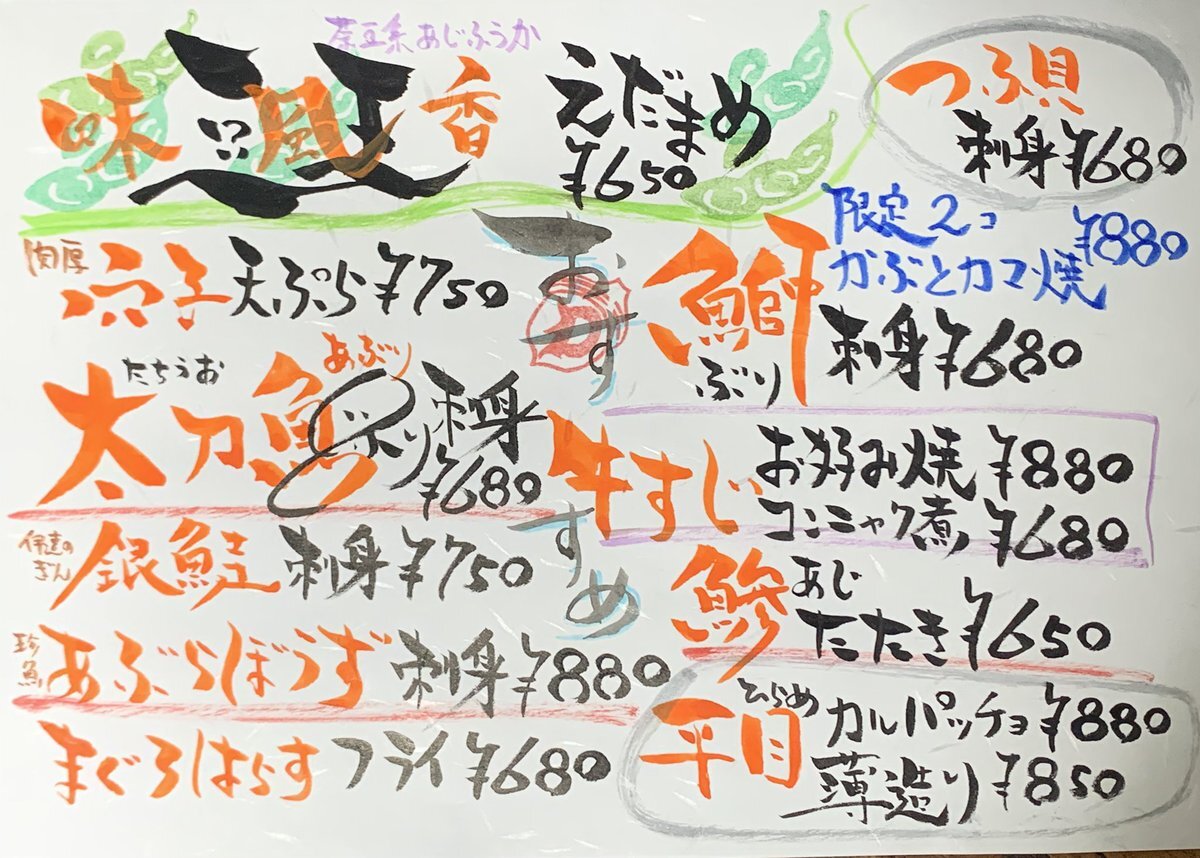 茶豆系あじふうか
味風香
えだまめ
¥650
つぶ貝
刺身¥680
おすすめ
肉厚
穴子天ぷら¥750
たちうお
太刀魚
あぶり
刺身
¥680
伊達の
ぎん
銀鮭刺身¥750
珍魚
あぶらぼうず刺身¥880
まぐろはらすフライ¥680
限定2コ
かぶとカマ焼
¥880
鰤
ぶり
刺身¥680
牛すじ
お好み焼¥880
コンニャク煮¥680
鯵
あじ
たたき¥650
平目
ひらめ
カルパッチョ¥880
薄造り¥850